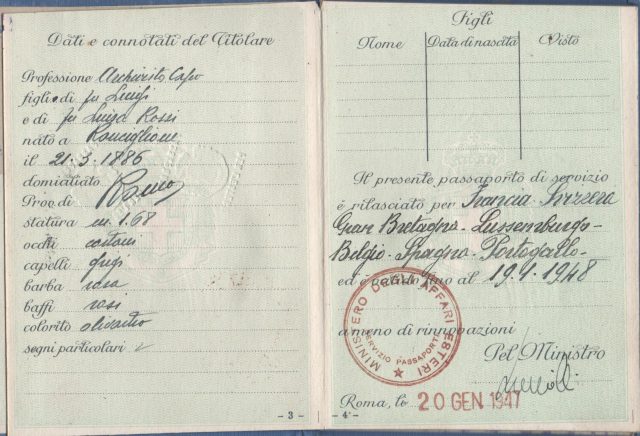 Dati e connotati del Titolare
Professione Archivista Capo
figlio di fu Luigi
e di fu Luisa Rossi
nato a Ronciglione
il 21-3-1886
domiciliato
Prov. di Roma
statura m 1.68
occhi castani
capelli grigi
barba rasa
baffi rasi
colorito olivastro
segni particolari
- 3 -
Figli
Nome Data di nascita Visto
Il presente passaporto di servizio
è rilasciato per Francia Svizzera
Gran Bretagna - Lussemburgo -
Belgio - Spagna - Portogallo -
ed è valido fino al 19-1-1948
a meno di rinnovazioni
MINISTERO DEGLI AFFARI ESTERI
SERVIZIO PASSAPORTI
Pel Ministro
Roma, lì 20 GEN. 1947
- 4 -